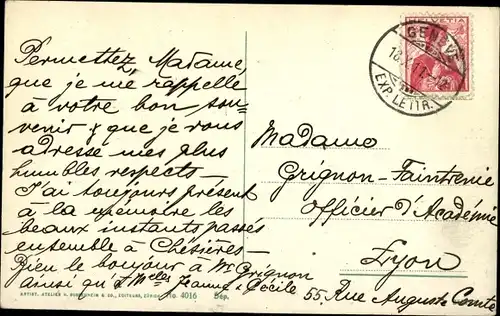 Permettez, Madame,
que je me rappelle
à votre bon sou-
venir & que je vous
adresse mes plus
humbles respects —
J'ai toujours présent
à la mémoire les
beaux instants passés
ensemble à Chésières —
Bien le bonjour à Mr Grignon
ainsi qu'à Melles Jeanne & Cécile
No. 4016 Dép.
HELVETIA
GENÈVE
EXP. LETTR.
Madame
Grignon-Faintrenie
Officier d'Académie
Lyon
55 Rue Auguste Comte